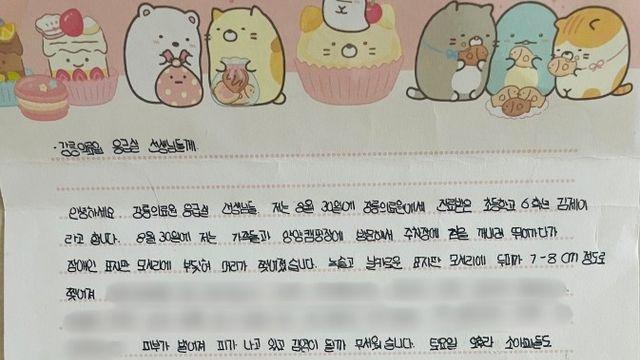 · 강릉의료원 응급실 선생님들께
안녕하세요. 강릉의료원 응급실 선생님들. 저는 8월 30일에 강릉의료원에서 진료받은 초등학교 6학년 김제이
라고 합니다. 8월 30일에 저는 가족들과 양양캠핑장에 방문해서 주차장에 짐을 꺼내러 뛰어가다가
장애인 표지판 모서리에 부딪혀 머리가 찢어졌습니다. 녹슬고 날카로운 표지판 모서리에 두피가 7-8cm 정도로
찢어져
피부가 벌어져 피가 나고 있고 감염이 될까 무서웠습니다. 토요일 오후라 소아과들도